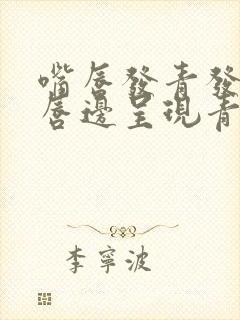 嘴唇發青發
唇邊呈現青
李寧波